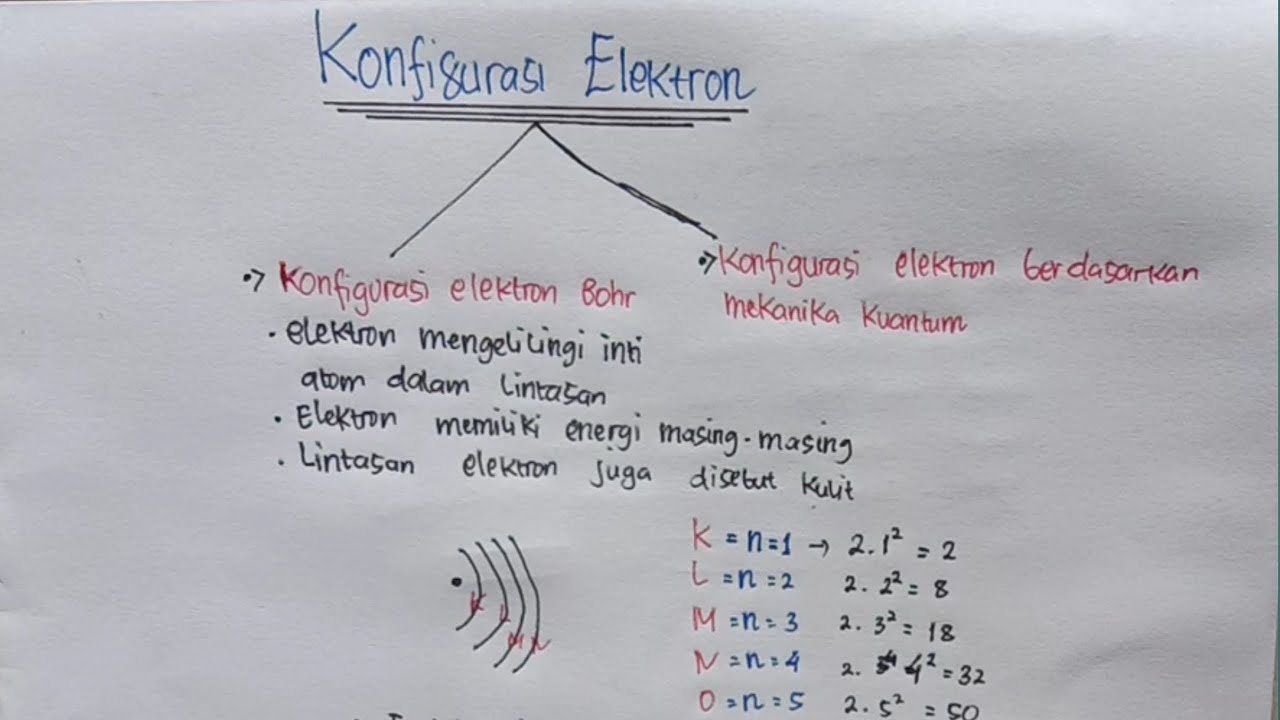 Konfigurasi Elektron
•> Konfigurasi elektron Bohr
• elektron mengelilingi inti
atom dalam lintasan
• Elektron memiliki energi masing-masing
• Lintasan elektron juga disebut kulit
•> Konfigurasi elektron berdasarkan
mekanika kuantum
K L M N
K = n = 1 → 2.1² = 2
L = n = 2 2. 2² = 8
M = n = 3 2. 3² = 18
N = n = 4 2. 4² = 32
O = n = 5 2. 5² = 50